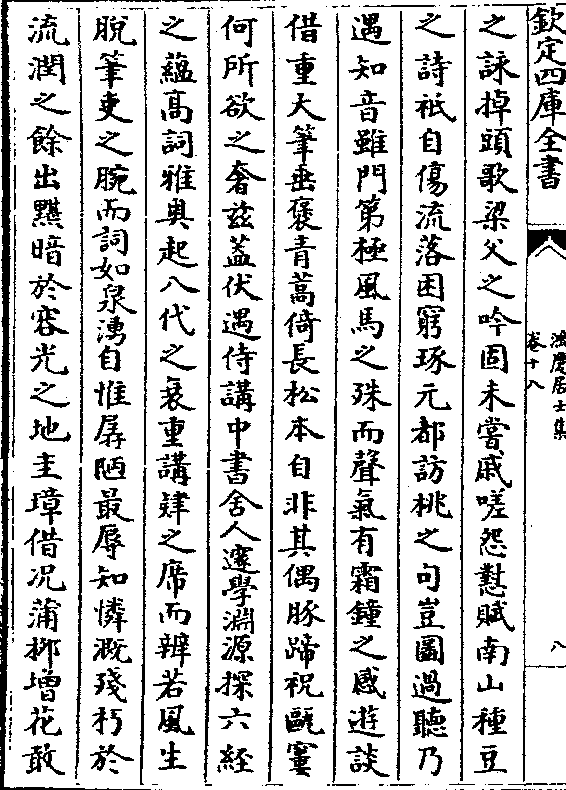 欽定四庫全書
鴻慶居士集
卷十八
八
之詠掉頭歌梁父之吟固未嘗戚嗟怨懟賦南山種豆
之詩祇自傷流落困窮琢元都訪桃之句豈圖過聽乃
遇知音雖門第極風馬之殊而聲氣有霜鐘之感遊談
借重大筆垂褒青蒿倚長松本自非其偶豚蹄祝甌窶
何所欲之奢兹葢伏遇侍講中書舍人邃學淵源探六經
之藴高詞雅奥起八代之衰重講肄之席而辨若風生
脱筆吏之腕而詞如泉湧自惟孱陋最辱知憐溉殘朽於
流潤之餘出黮暗於容光之地圭璋借况蒲柳增花敢